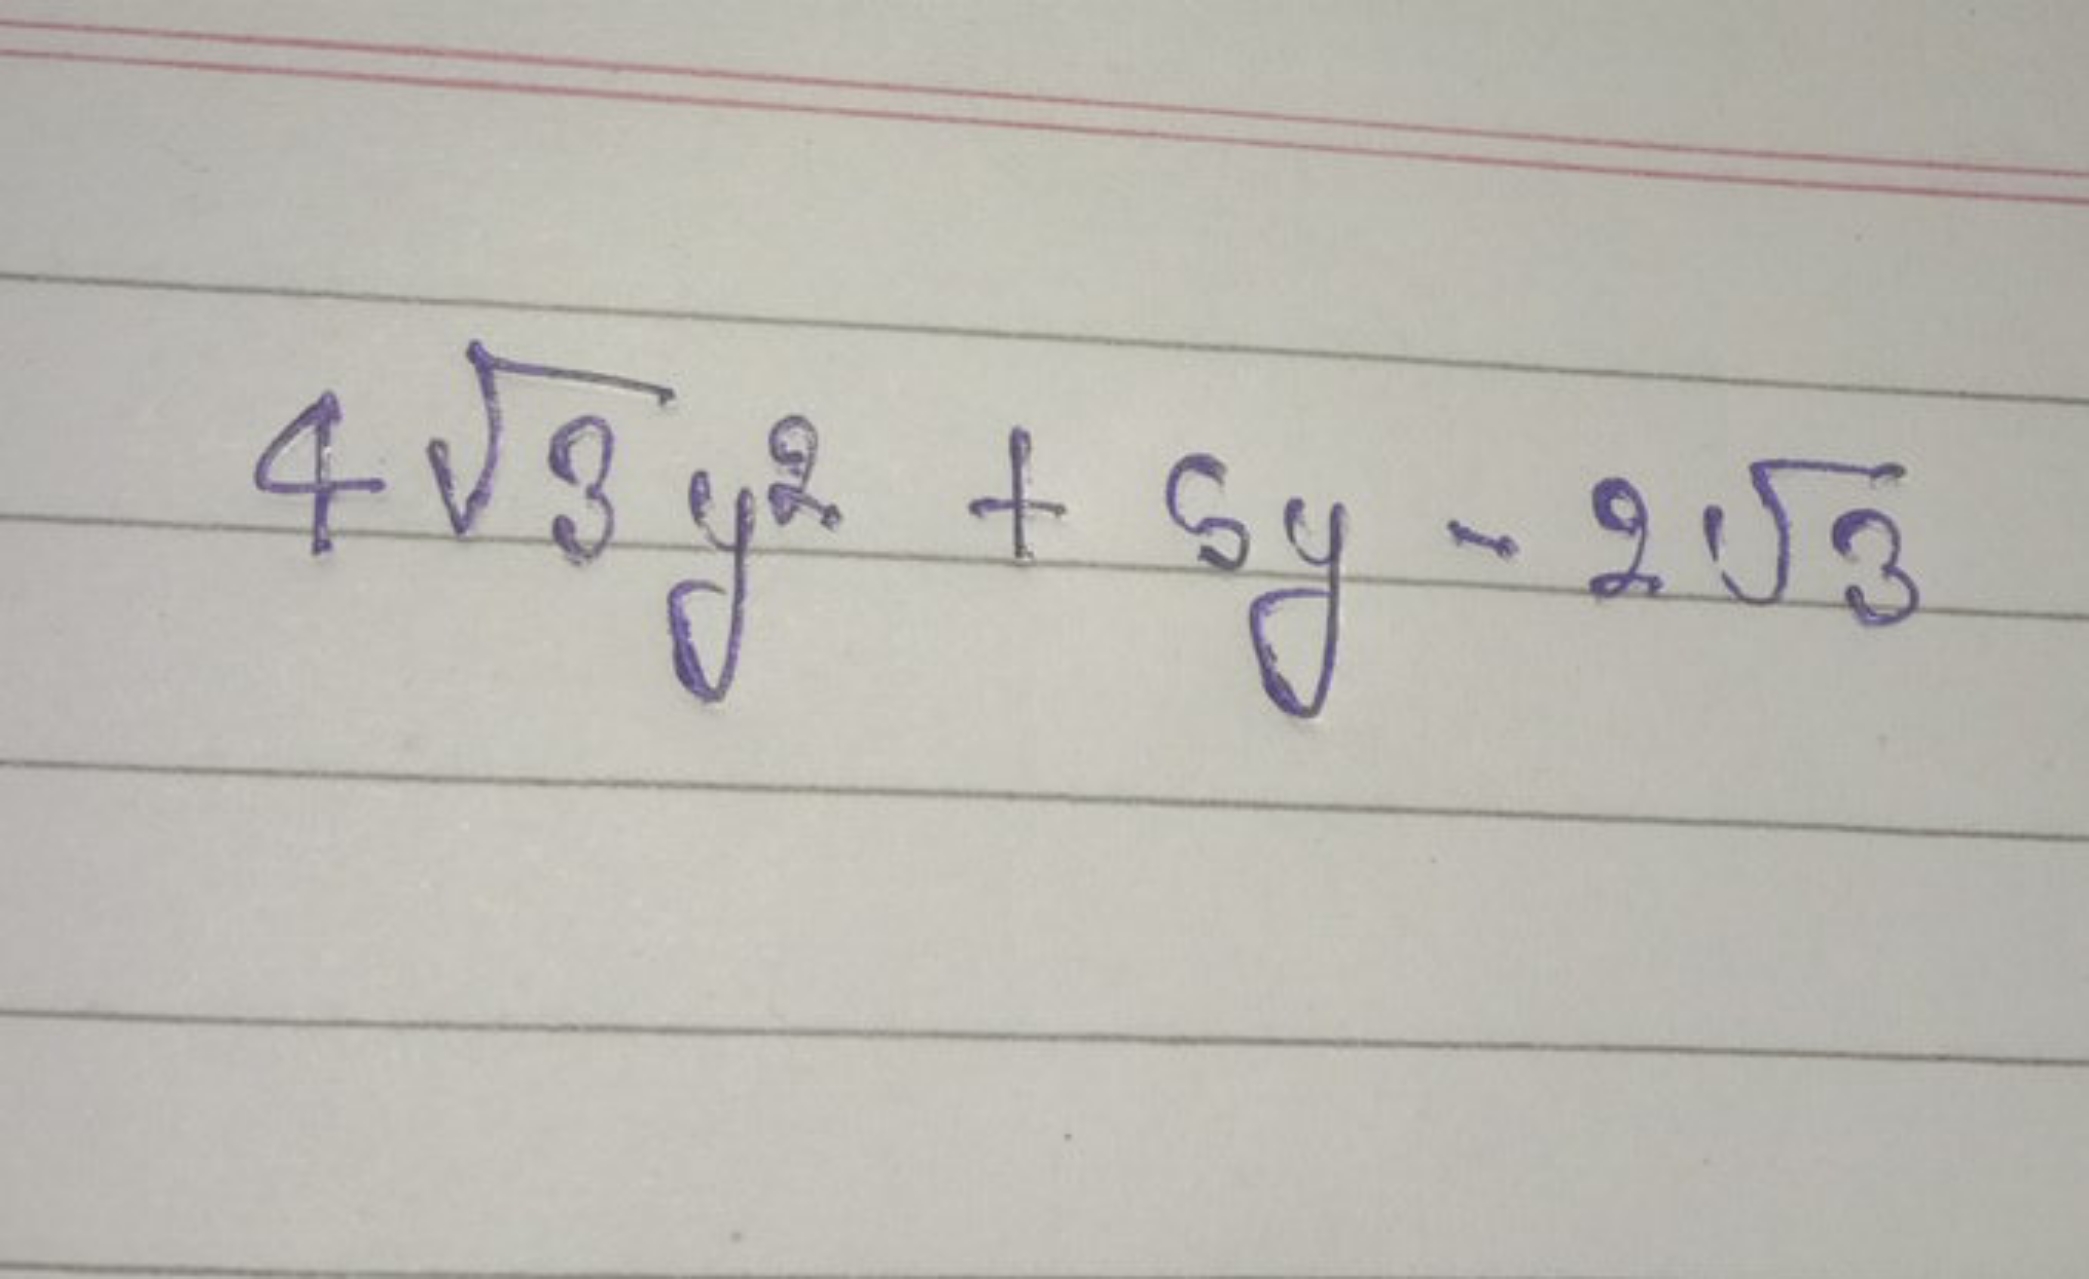 4√3 y² + 5y - 2√3